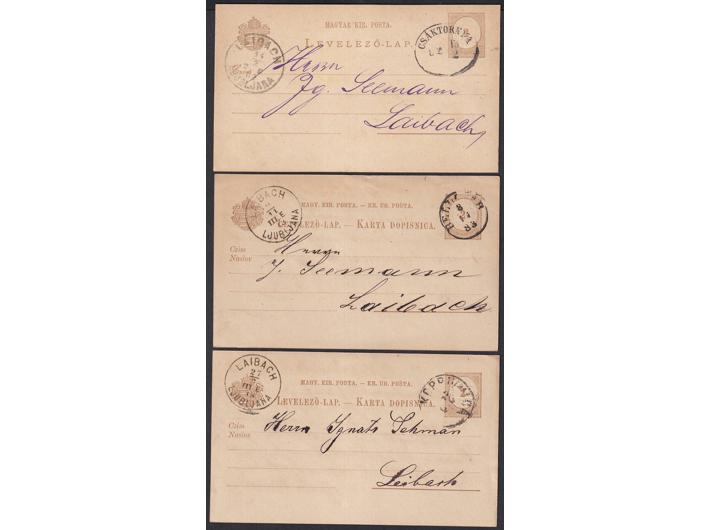 MAGYAR KIR. POSTA.
LEVELEZŐ-LAP.
LAIBACH
LJUBLJANA
CSÁKTORNYA
Herrn
Jg. Seemann
Laibach
MAGY. KIR. POSTA. — KR. UG. POŠTA.
LEVELEZŐ-LAP. — KARTA DOPISNICA.
LAIBACH
LJUBLJANA
Czim
Naslov
Herrn
J. Seemann
Laibach
MAGY. KIR. POSTA. — KR. UG. POŠTA.
LEVELEZŐ-LAP. — KARTA DOPISNICA.
LAIBACH
27
LJUBLJANA
Czim
Naslov
Herrn Ignatz Sehman
Leibach